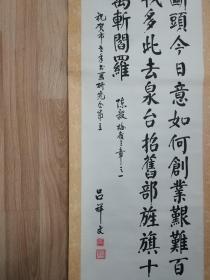 断頭今日意如何創業艱難百
戰多此去泉台招舊部旌旗十
萬斬閻羅
陳毅梅嶺三章之一
祝賀市老年書畫研究会成立
呂祥文